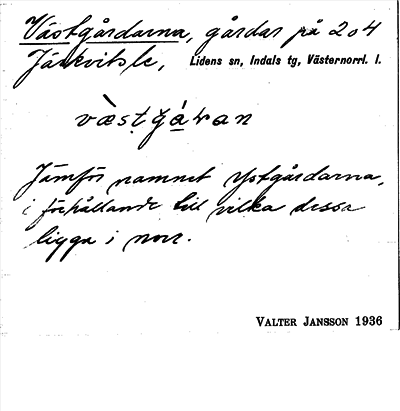 Västgårdarna, gårdar på 2 o 4
Järkvitsle, Lidens sn, Indals tg, Västernorrl. l.
væ̀sṭgáṛan
Jämför namnet Ystgårdarna,
i förhållande till vilka dessa
ligga i norr.
VALTER JANSSON 1936